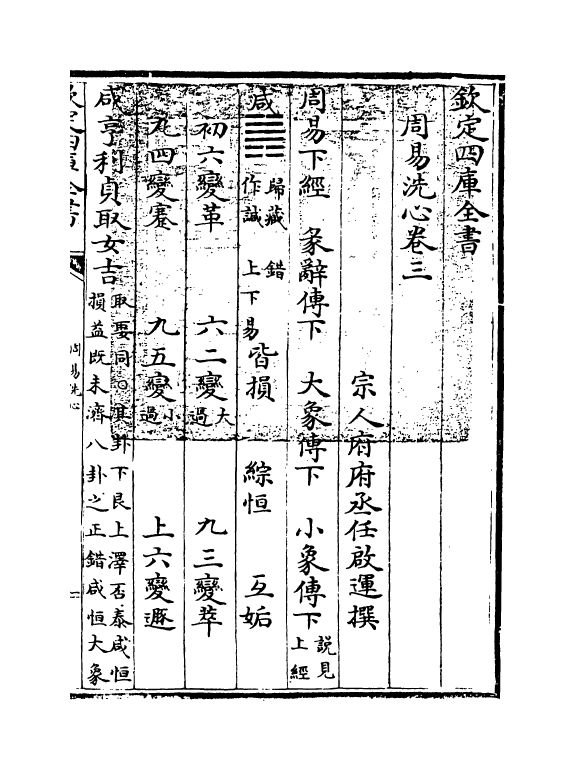 欽定四庫全書
周易洗心卷三
宗人府府丞任啟運撰
周易下經 彖辭傳下 大象傳下 小象傳下 說見上經
咸 歸藏作諴 錯上下易皆損 綜恒 互姤
初六變革 六二變大過 九三變萃
九四變蹇 九五變小過 上六變遯
咸亨利貞取女吉 取娶同○其卦下艮上澤否泰咸恒損益既未濟八卦之正錯咸恒大象
周易洗心